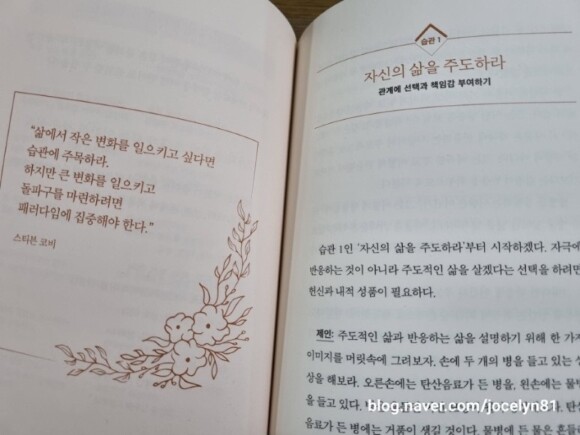 "삶에서 작은 변화를 일으키고 싶다면
습관에 주목하라.
하지만 큰 변화를 일으키고
돌파구를 마련하려면
패러다임에 집중해야 한다."
스티븐 코비
습관 1
자신의 삶을 주도하라
관계에 선택과 책임감 부여하기
습관 1인 '자신의 삶을 주도하라'부터 시작하겠다. 자극에
반응하는 것이 아니라 주도적인 삶을 살겠다는 선택을 하려면
헌신과 내적 성품이 필요하다.
제인: 주도적인 삶과 반응하는 삶을 설명하기 위해 한 가지
이미지를 머릿속에 그려보자. 손에 두 개의 병을 들고 있는
상을 해보라. 오른손에는 탄산음료가 든 병을, 왼손에는 물병
을 들고 있다.
음료가 든 병에는 거품이 생길 것이다. 물병에 든 물은 흔들
blog.naver.com/jocelyn81